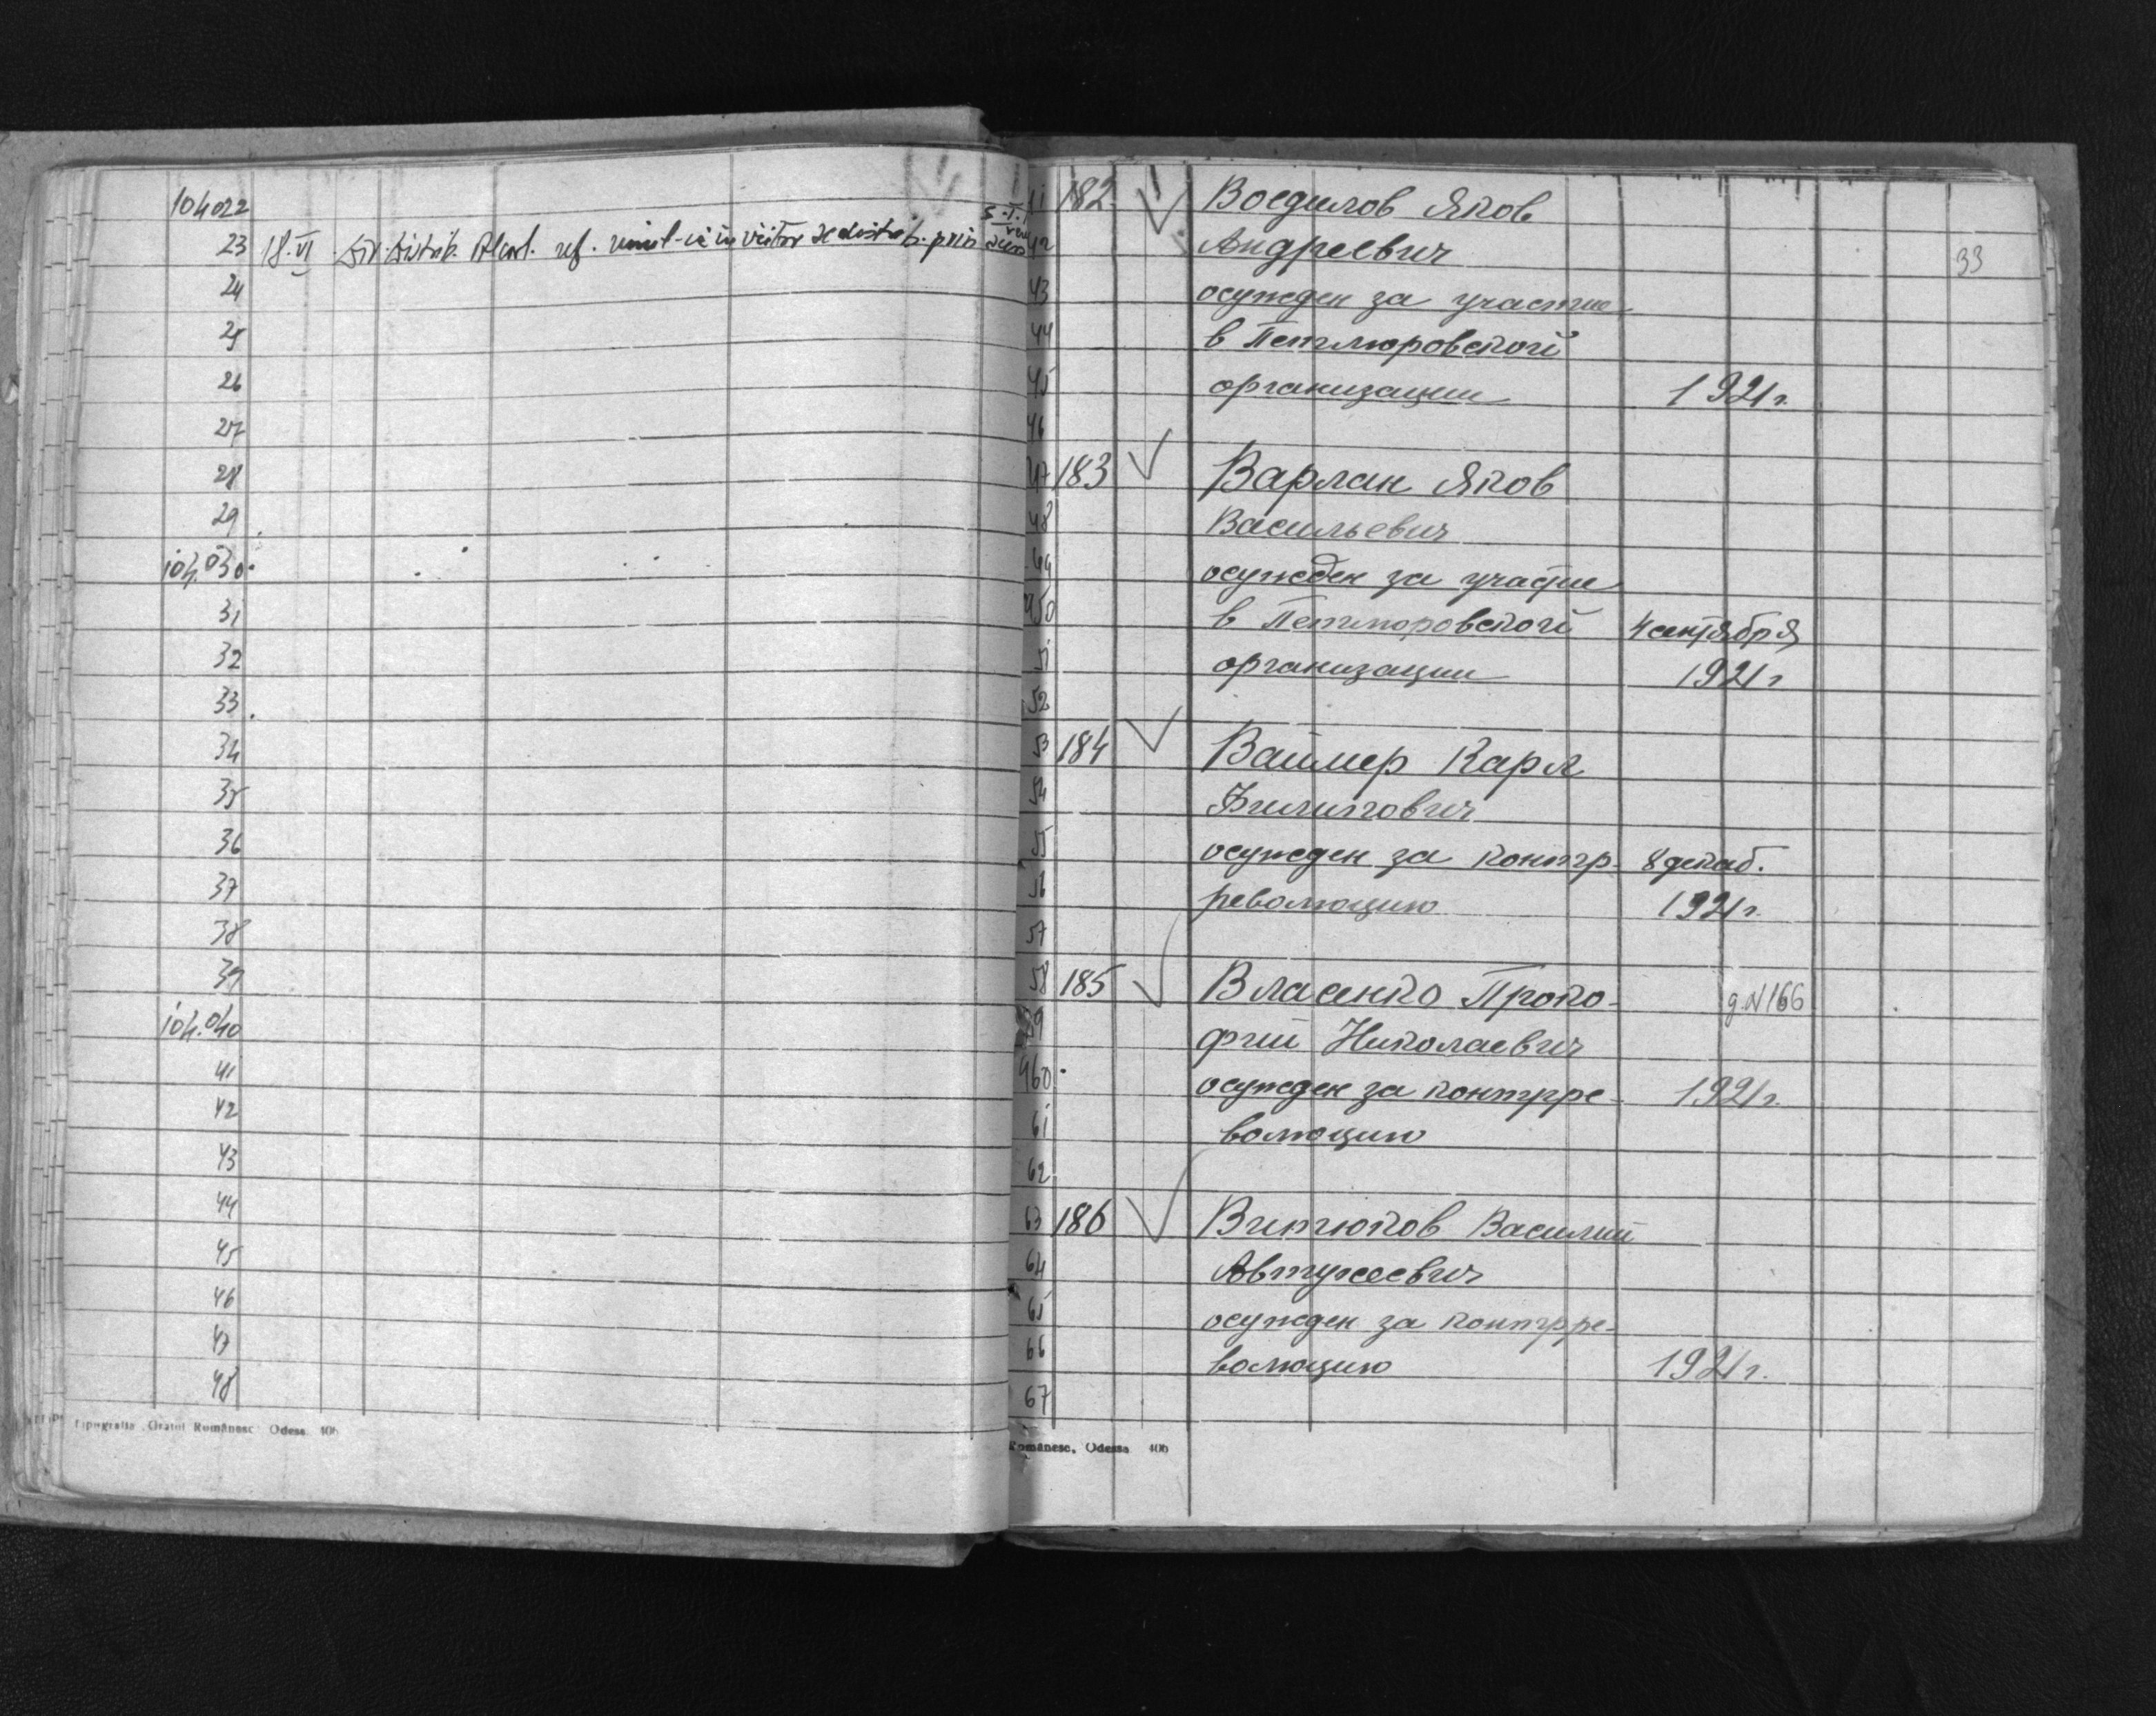 104022
23 18.VI
24
25
26
27
28
29
104.030
31
32
33
34
35
36
37
38
39
104.040
41
42
43
44
45
46
47
48
Tipografia „Graiul Românesc Odesa 406
33
182 Воедилов Яков
Андреевич
43 осужден за участие
44 в Петлюровской
45 организации 1921 г.
46
47 183 Варлан Яков
48 Васильевич
49 осужден за участие
950 в Петлюровской 4 сентября
51 организации 1921 г
52
53 184 Ваймер Карл
54 Филипович
55 осужден за контр- 8 декаб.
56 революцию 1921 г.
57
58 185 Власенко Проко- д.N166
59 фий Николаевич
960 осужден за контрре- 1921 г.
61 волюцию
62
63 186 Витюков Василий
64
65 осужден за контрре-
66 волюцию 1921 г.
67
Românesc, Odessa 406